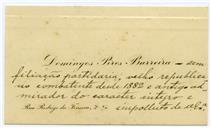 Domingos Pires Barreira — sem
filiação partidaria, velho republica-
no combatente desde 1882 e antigo ad-
mirador do caracter integro e
impolluto de V. Exª